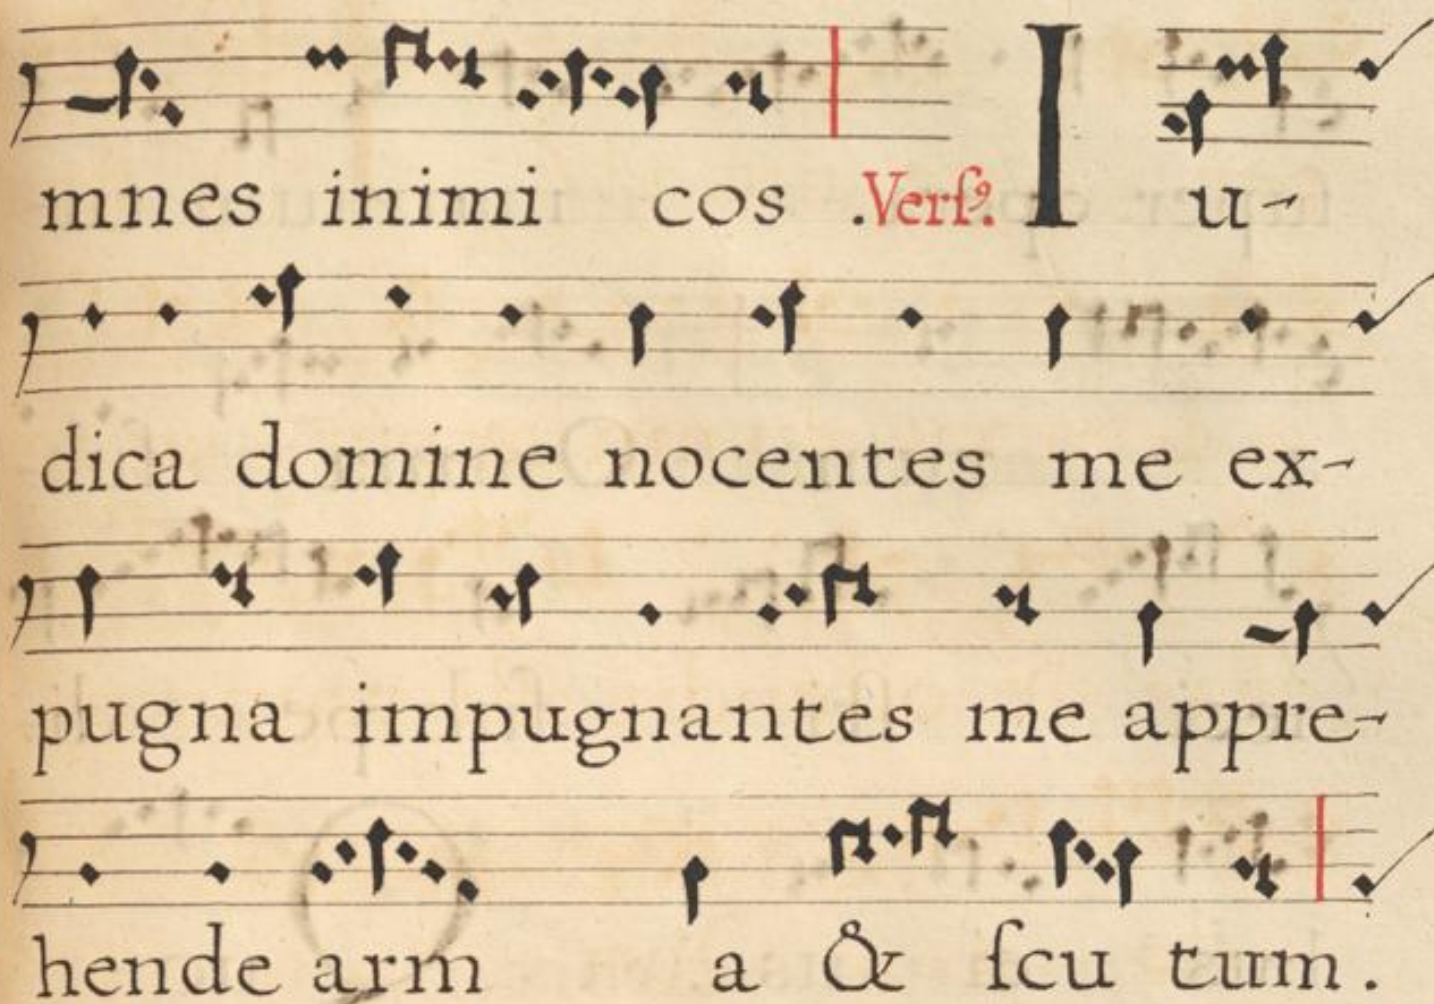 mnes inimi cos . Verſꝰ. I u-
dica domine nocentes me ex-
pugna impugnantes me appre-
hende arm a & ſcu tum.